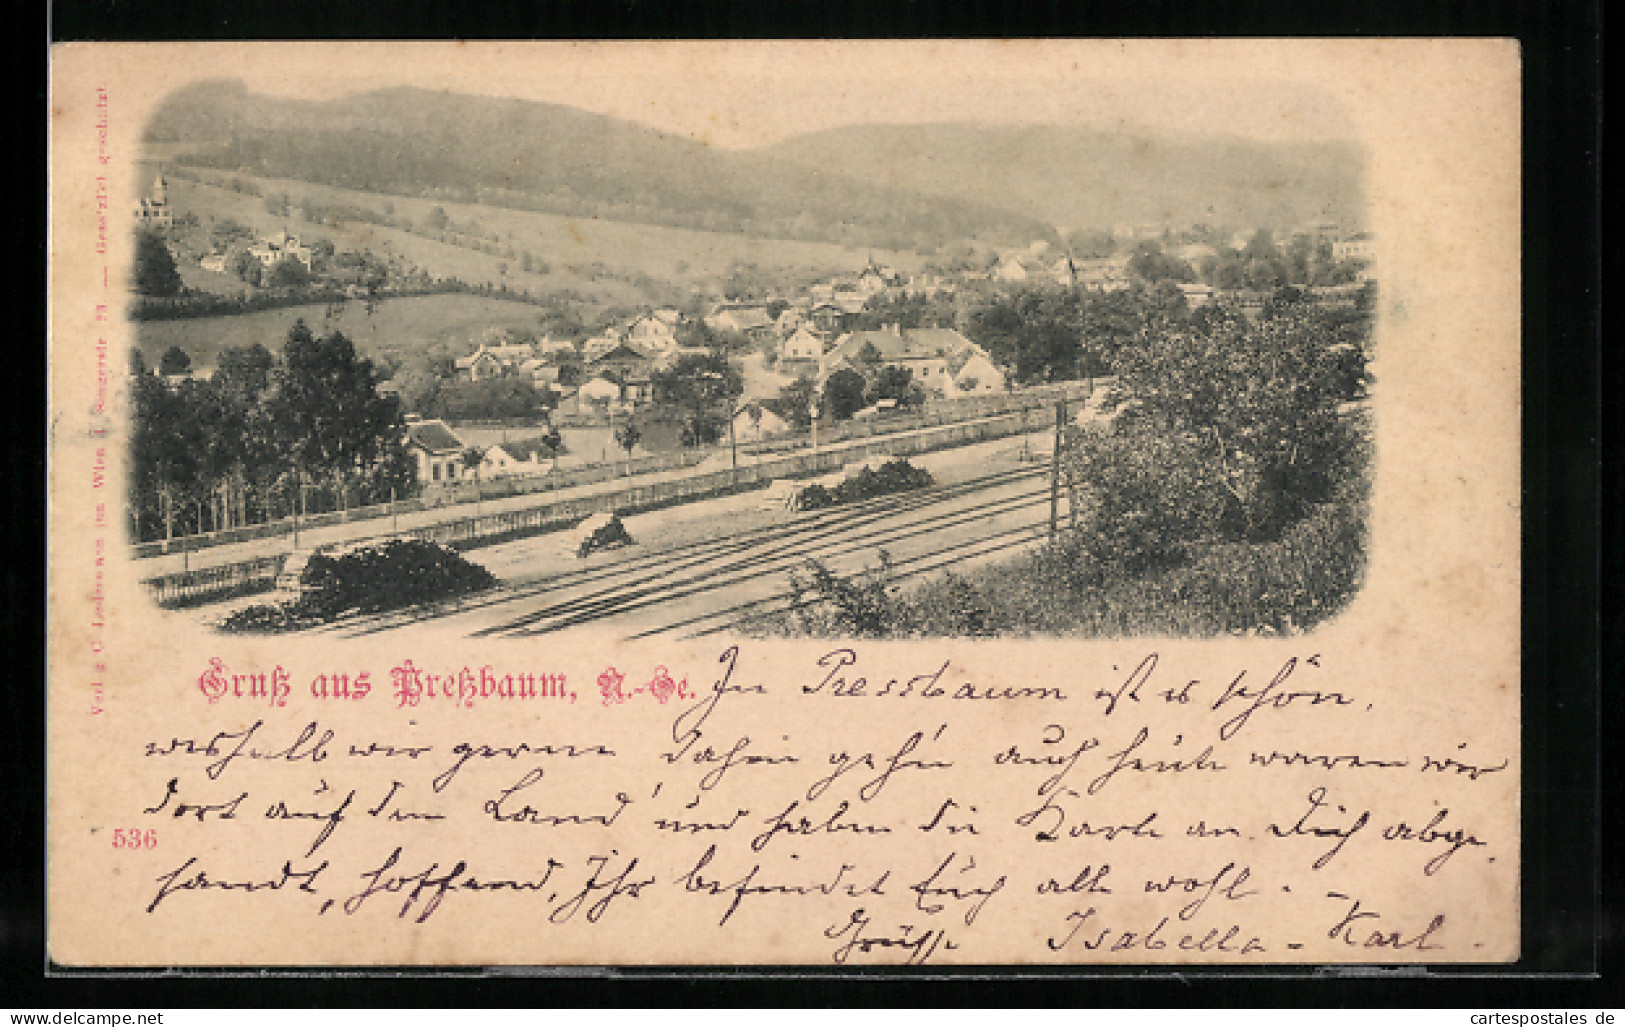 Verlag C. Ledermann jun. Wien I. Singerstr. 23 — Gesetzlich geschützt.
Gruß aus Preßbaum, N.-Oe.
In Pressbaum ist es schön,
weshalb wir gerne dahin gehn auch heute waren wir
dort auf dem Land und haben die Karte an Dich abge
sandt, hoffend, Ihr befindet Euch alle wohl. –
Grüsse Isabella – Karl.
536
cartespostales de
www.cartespostales.com